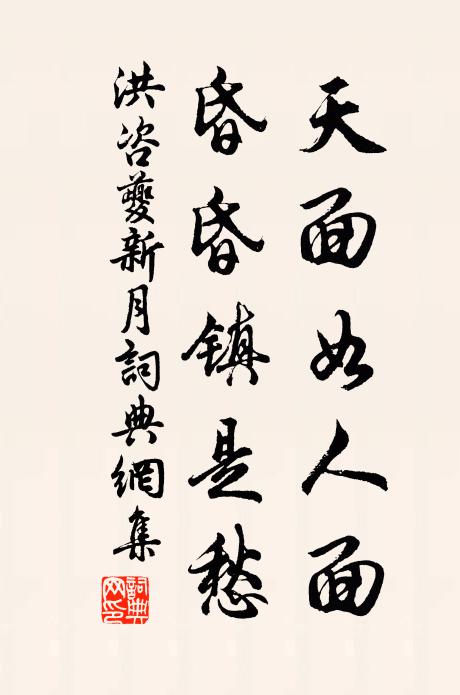 天面如人面
昏昏镇是愁
洪咨夔新月詞典網集
詞典网印